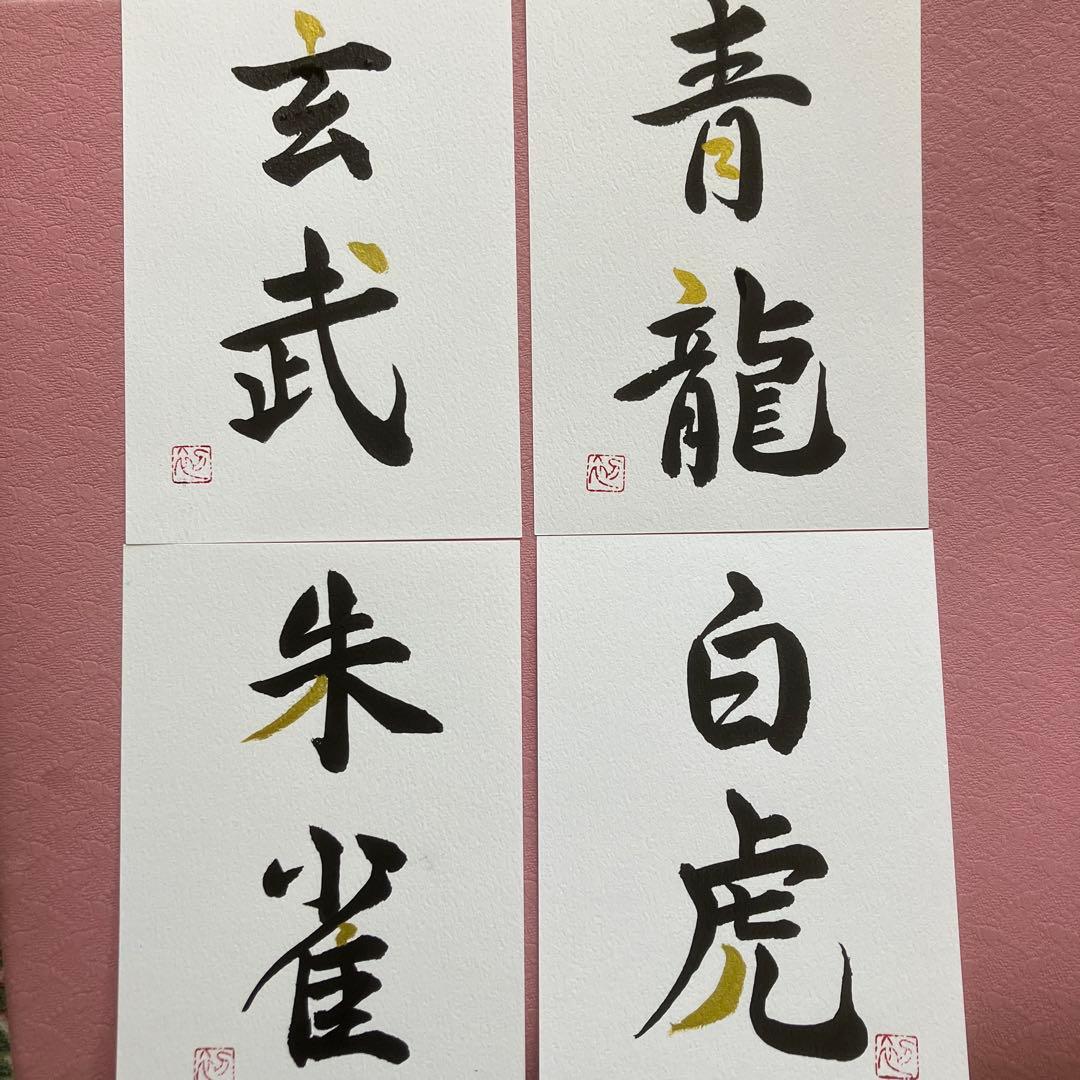 玄武
青龍
朱雀
白虎